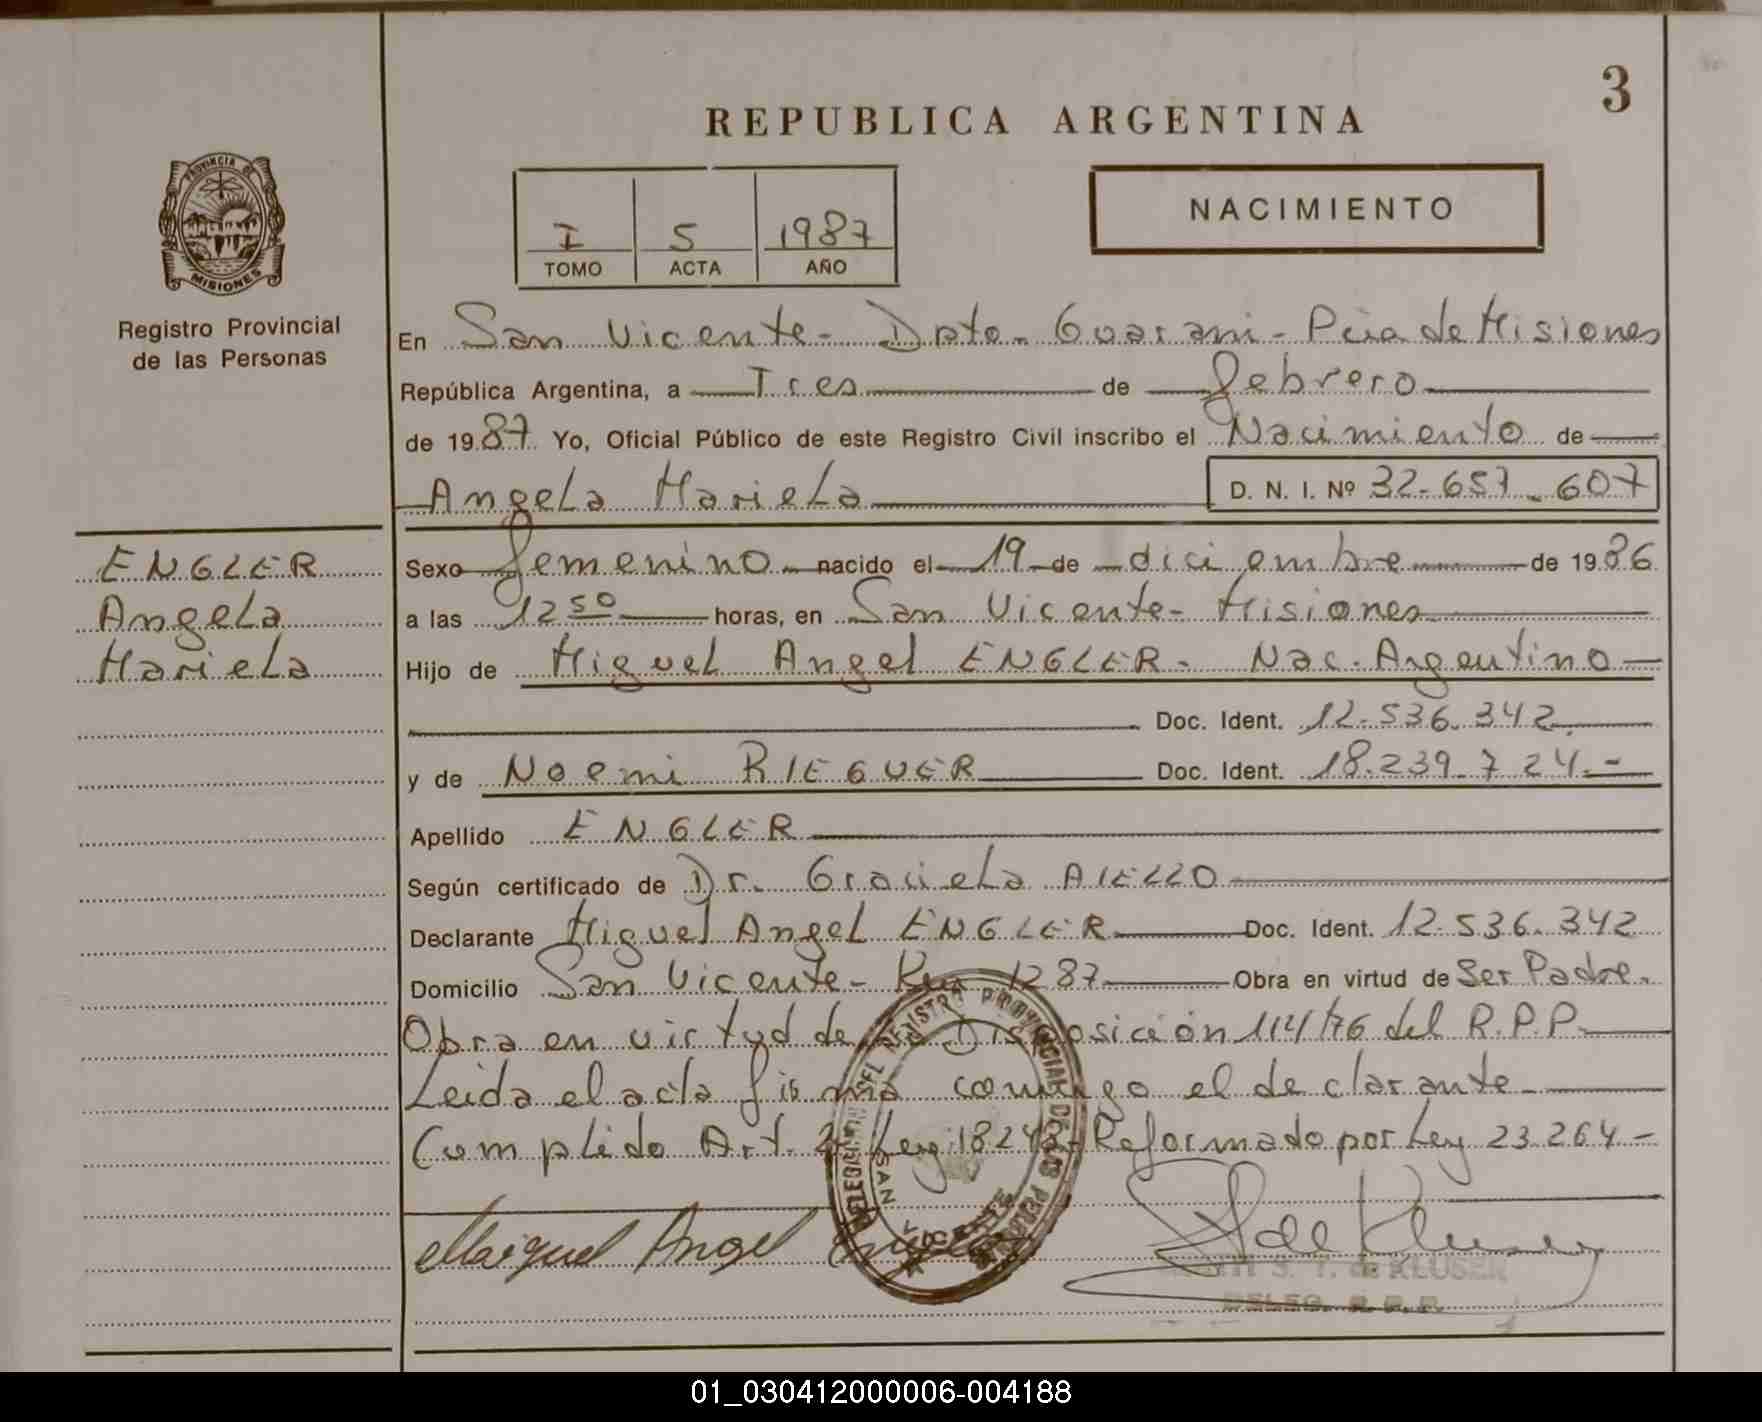 3
REPUBLICA ARGENTINA
PROVINCIA DE
MISIONES
Registro Provincial
de las Personas
I 5 1987
TOMO ACTA AÑO
NACIMIENTO
En San Vicente - Dpto. Guarani - Pcia de Misiones
República Argentina, a Tres de febrero
de 1987 Yo, Oficial Público de este Registro Civil inscribo el Nacimiento de
Angela Mariela D. N. I. Nº 32-657-607
ENGLER
Angela
Mariela
Sexo femenino nacido el 19 de diciembre de 1986
a las 12 50 horas, en San Vicente - Misiones
Hijo de Miguel Angel ENGLER - Nac. Argentino
Doc. Ident. 12-536.342
y de Noemi RIEGUER Doc. Ident. 18.239.724.-
Apellido ENGLER
Según certificado de Dr. Graciela AIELLO
Declarante Miguel Angel ENGLER Doc. Ident. 12-536.342
Domicilio San Vicente - Km 1287 Obra en virtud de Ser Padre.
Obra en virtud de la Disposición 114/76 del R.P.P.
Leida el acta firma conmigo el declarante
Cumplido Art. 2 Ley 18248 - Reformado por Ley 23.264 -
Miguel Angel
REGISTRO PROVINCIAL DE LAS
SAN VICENTE
S. T. de KLUSER
DELEG. R. P. P.
01_030412000006-004188